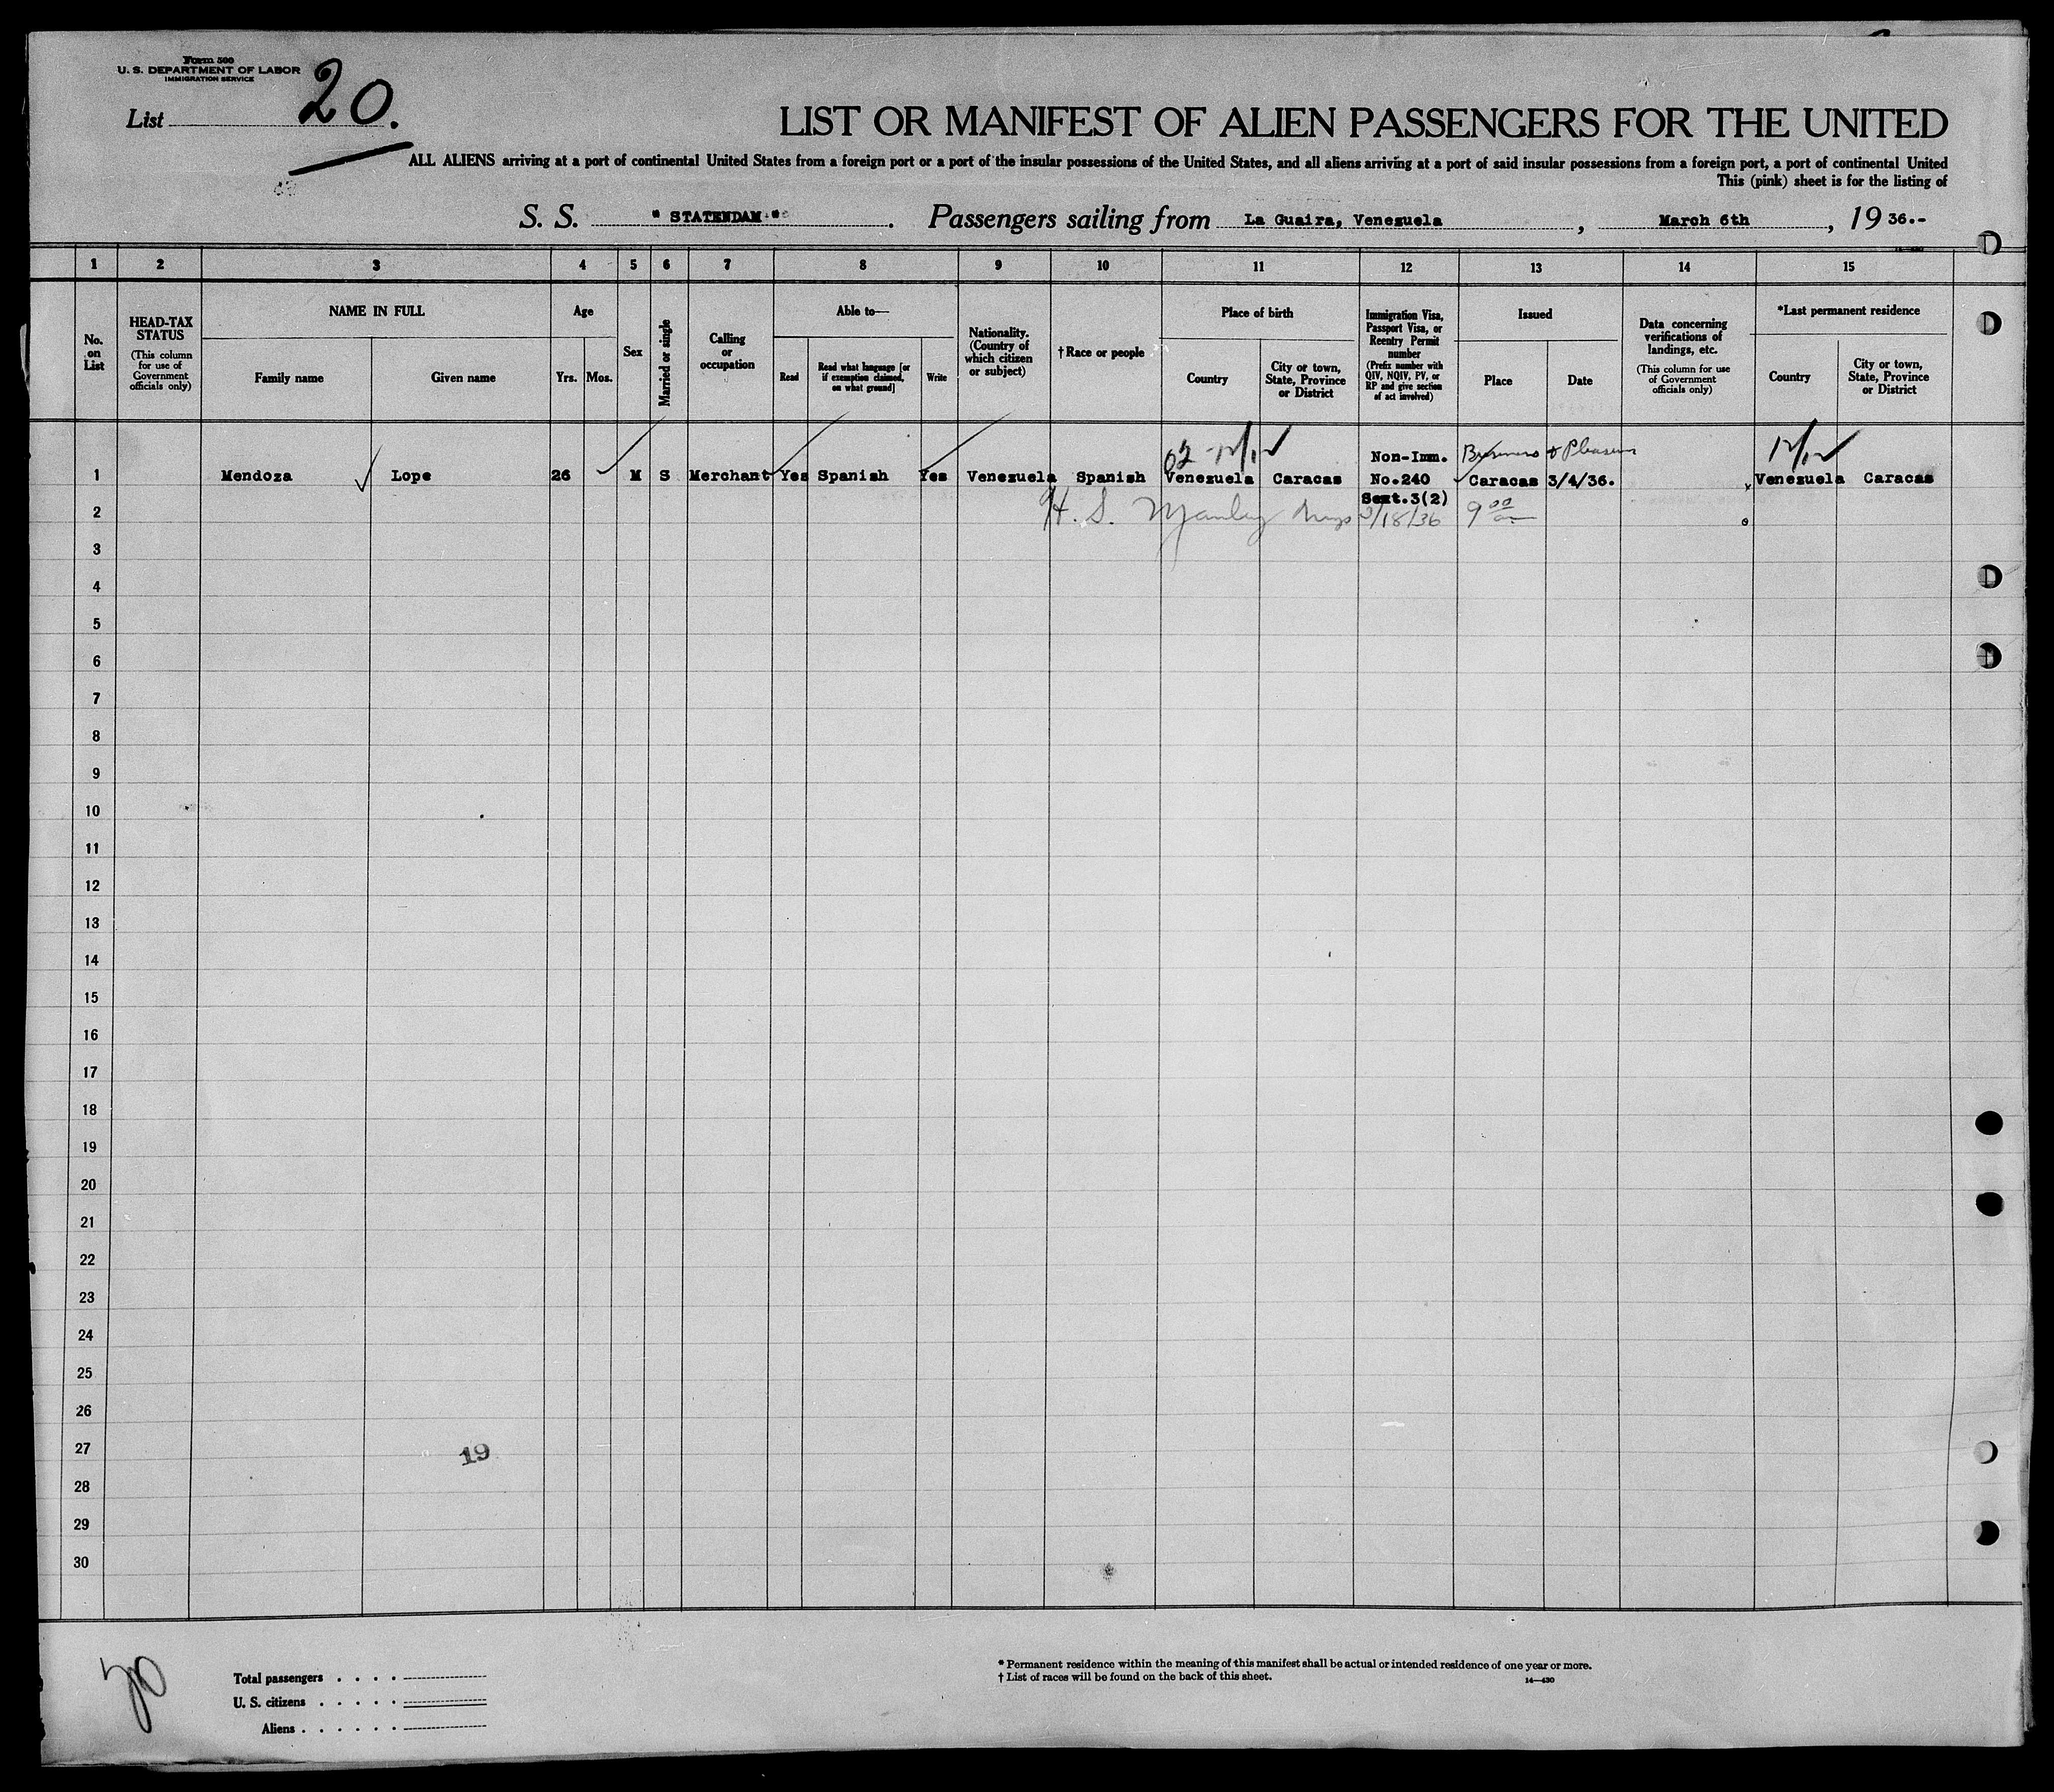 Form 500
U. S. DEPARTMENT OF LABOR
IMMIGRATION SERVICE
List 20.
LIST OR MANIFEST OF ALIEN PASSENGERS FOR THE UNITED
ALL ALIENS arriving at a port of continental United States from a foreign port or a port of the insular possessions of the United States, and all aliens arriving at a port of said insular possessions from a foreign port, a port of continental United
This (pink) sheet is for the listing of
S. S. "STATENDAM". Passengers sailing from La Guaira, Venezuela, March 6th, 19 36.--
1 2 3 4 5 6 7 8 9 10 11 12 13 14 15
No. on List
HEAD-TAX STATUS
(This column for use of Government officials only)
NAME IN FULL
Family name
Given name
Age
Yrs.
Mos.
Sex
Married or single
Calling or occupation
Able to—
Read
Read what language [or if exemption claimed, on what ground]
Write
Nationality. (Country of which citizen or subject)
†Race or people
Place of birth
Country
City or town, State, Province or District
Immigration Visa, Passport Visa, or Reentry Permit number
(Prefix number with QIV, NQIV, PV, or RP and give section of act involved)
Issued
Place
Date
Data concerning verifications of landings, etc.
(This column for use of Government officials only)
*Last permanent residence
Country
City or town, State, Province or District
Non-Imm. Business & Pleasure
1 Mendoza Lope 26 M S Merchant Yes Spanish Yes Venezuela Spanish Venezuela Caracas No.240 Caracas 3/4/36. Venezuela Caracas
Sect.3(2)
2 H. S. Manley 3/18/36 9 00
3
4
5
6
7
8
9
10
11
12
13
14
15
16
17
18
19
20
21
22
23
24
25
26
27
19
28
29
30
20
Total passengers . . . .
U. S. citizens . . . . .
Aliens . . . . . .
* Permanent residence within the meaning of this manifest shall be actual or intended residence of one year or more.
† List of races will be found on the back of this sheet.
14—430